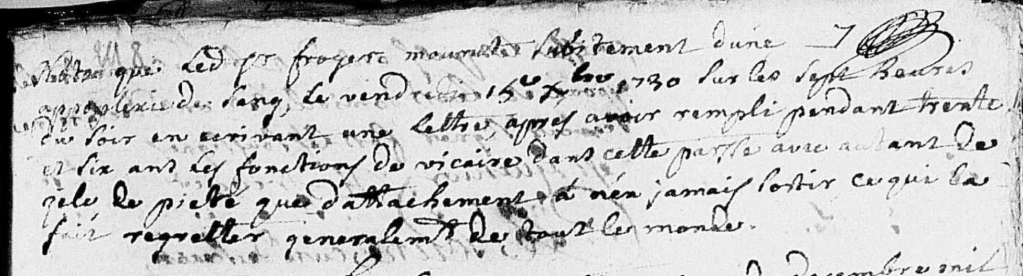 Nota que led sr froger mourut subitement dune 7
appoplexie de sang, le vendredi 15e xbre 1730 sur les sept heures
du soir en ecrivant une lettre, apres avoir rempli pendant trente
et six ans les fonctions de vicaire dans cette parsse avec autant de
zele de pieté que d'attachement a nén jamais sortir ce qui la
fait regretter generalemt de tout le monde.
decembre mil